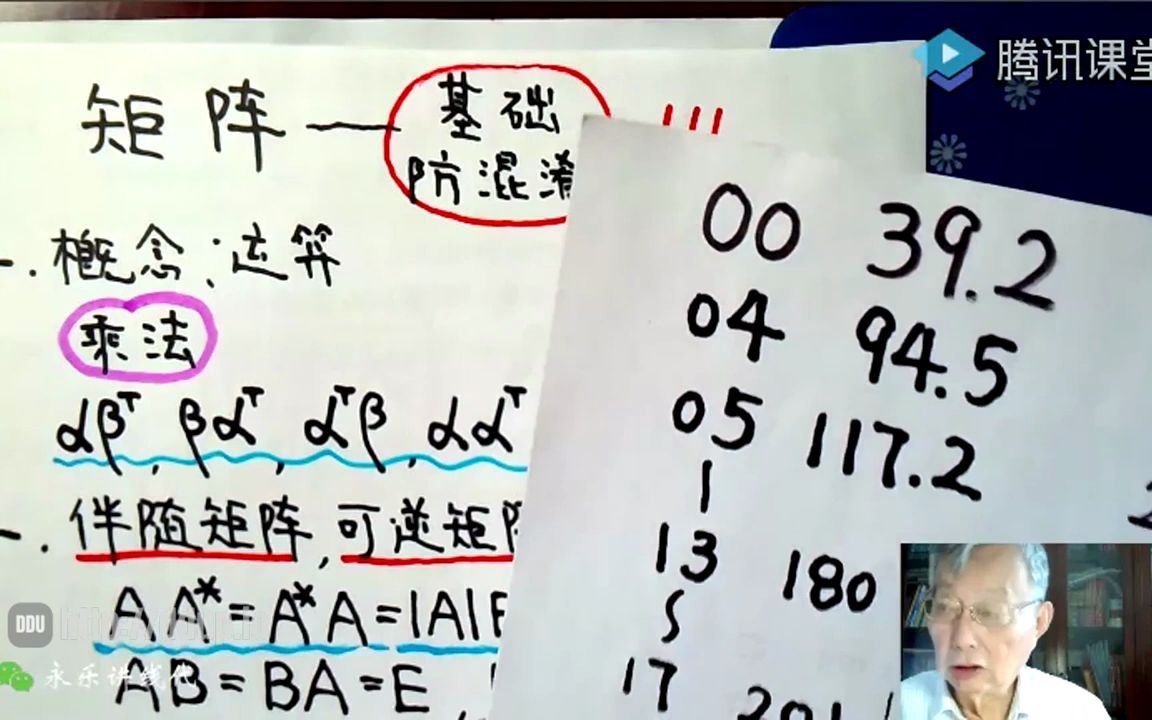 腾讯课堂
矩阵——基础
防混淆
!!!
一.概念;运算
乘法
αβᵀ, βαᵀ, αᵀβ, ααᵀ
二.伴随矩阵,可逆矩阵
AA*=A*A=|A|E
AB=BA=E,
00 39.2
04 94.5
05 117.2
13 180
17 201.1
DDU
永乐讲线代